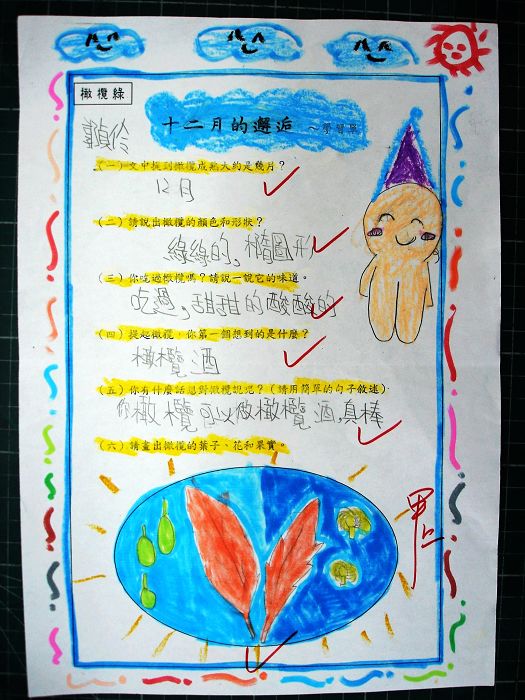 橄欖綠
十二月的邂逅 ～學習單
(一)文中提到橄欖成熟大約是幾月？
12月
(二)請說出橄欖的顏色和形狀？
綠綠的，橢圓形
(三)你吃過橄欖嗎？請說一說它的味道。
吃過，甜甜的酸酸的
(四)提起橄欖，你第一個想到的是什麼？
橄欖酒
(五)你有什麼話想對橄欖說呢？(請用簡單的句子敘述)
你橄欖可以做橄欖酒，真棒
(六)請畫出橄欖的葉子、花和果實。
甲上